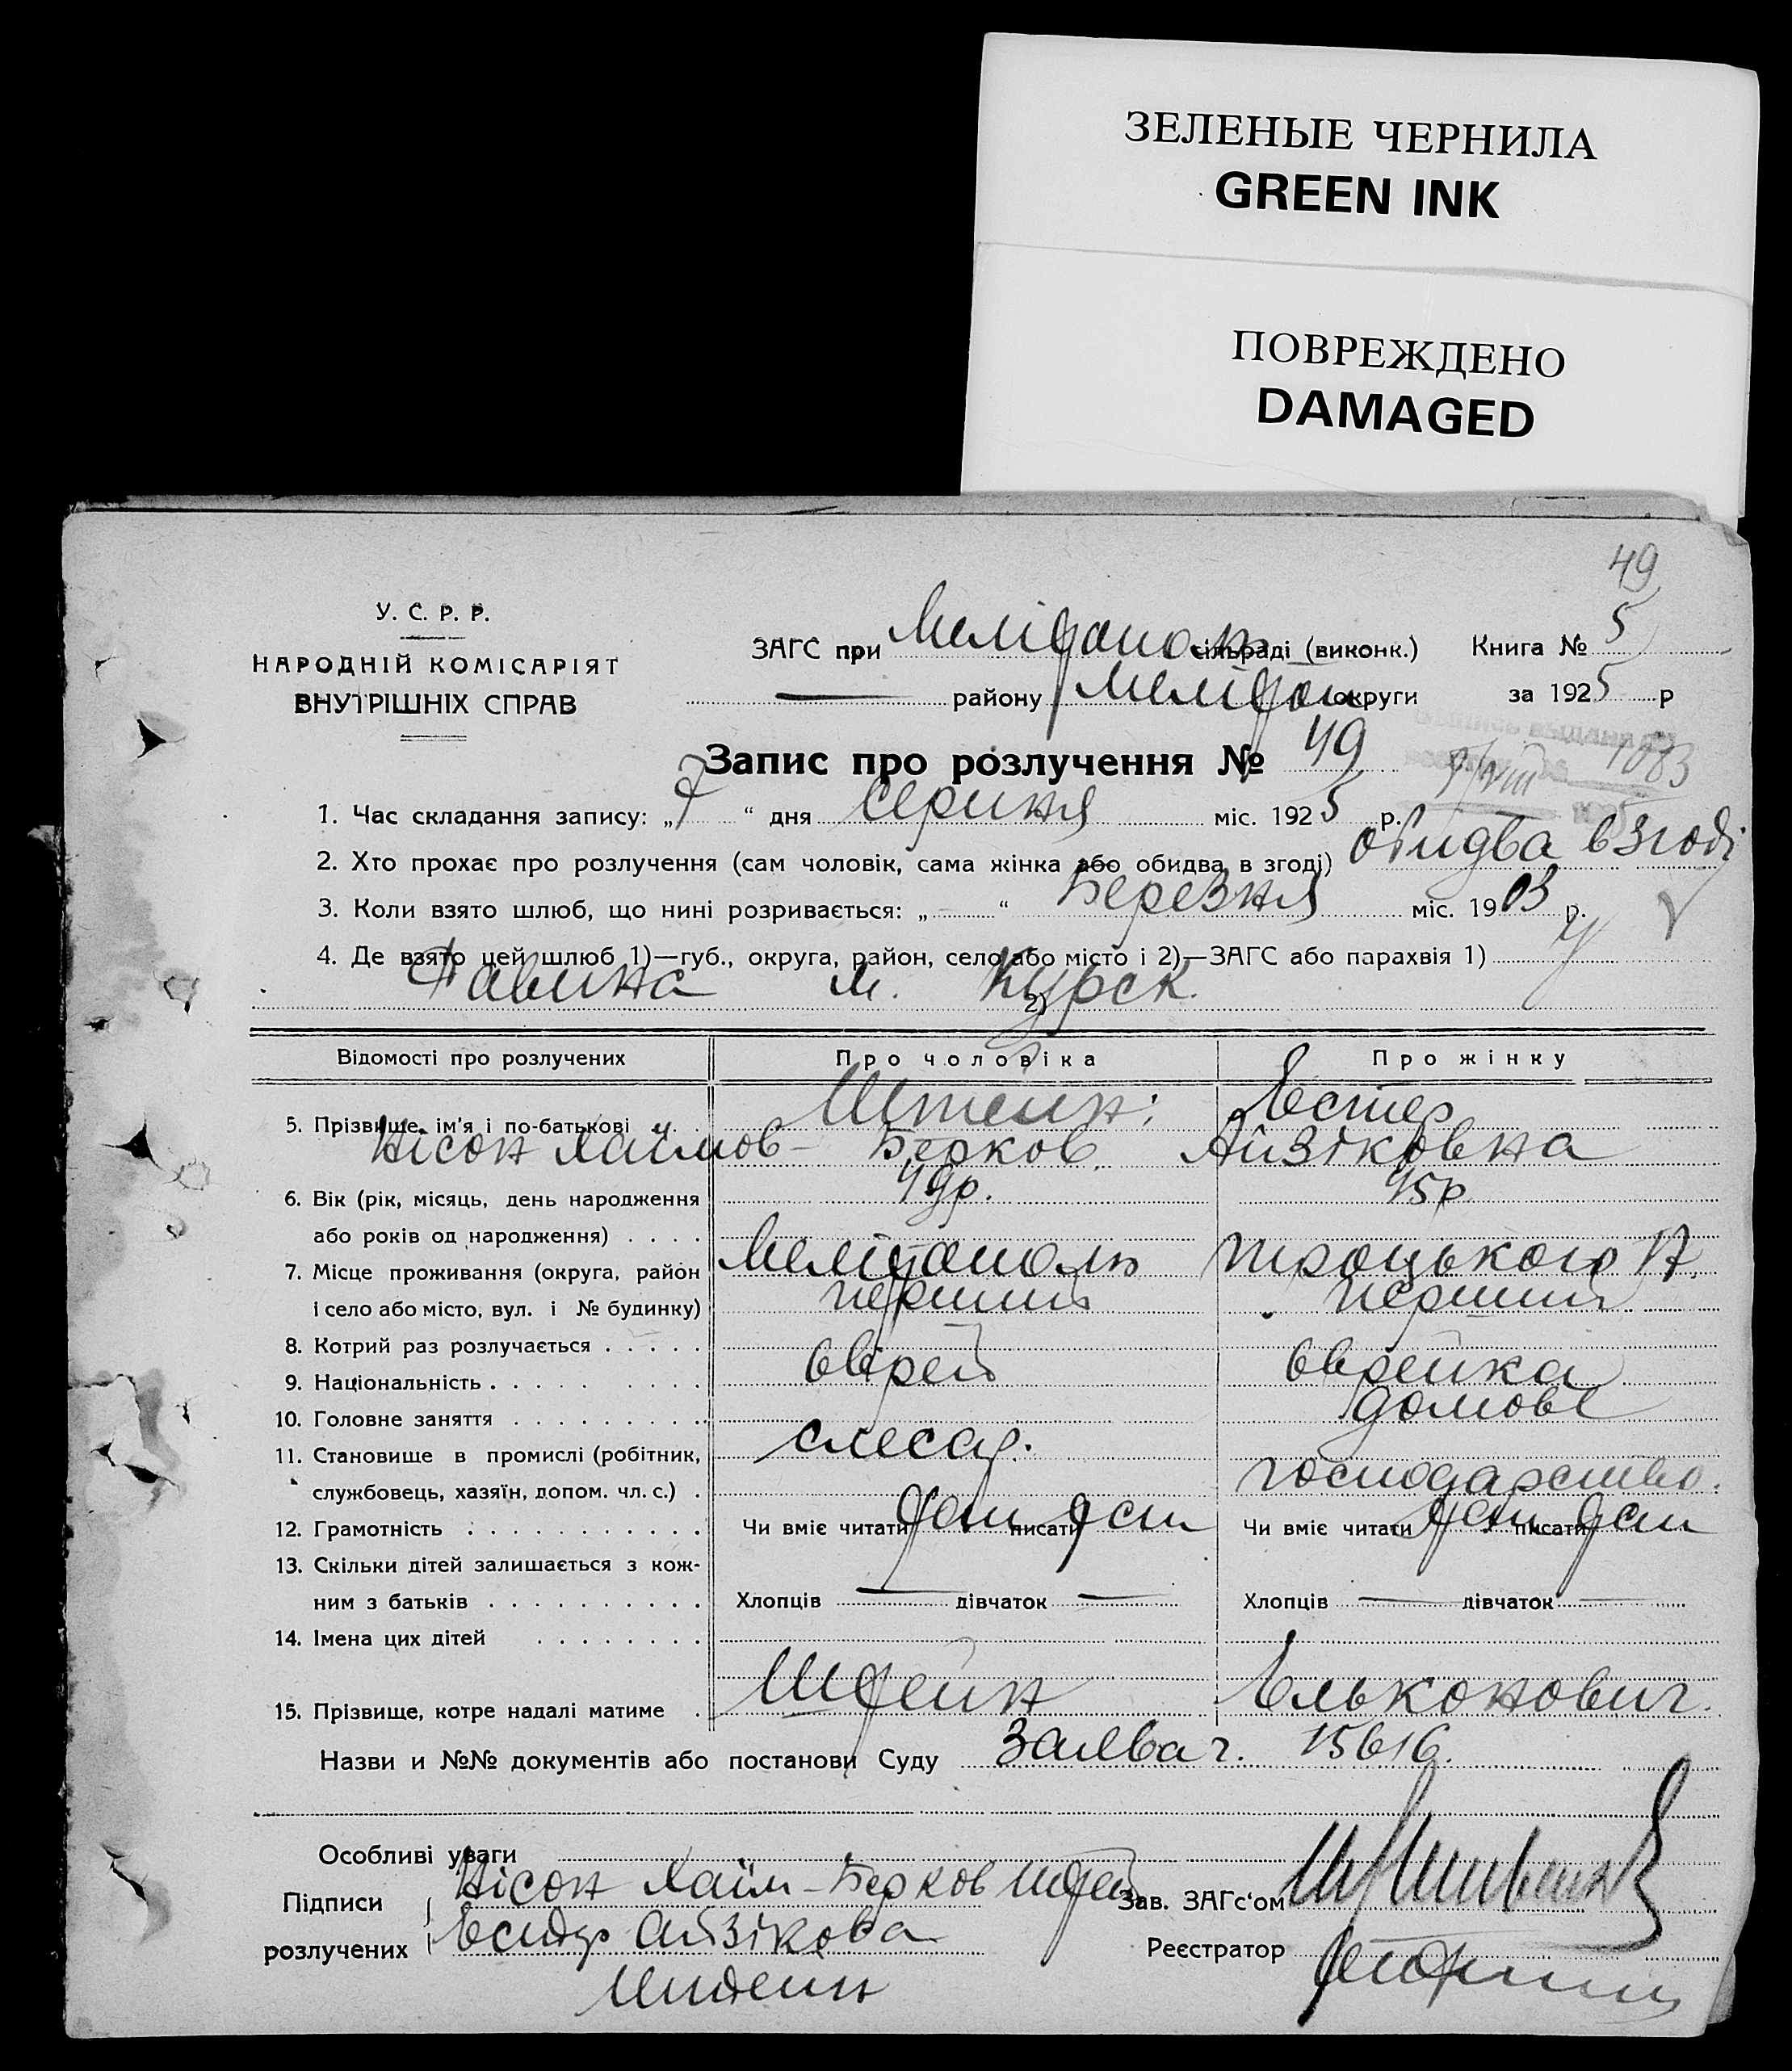 ЗЕЛЕНЫЕ ЧЕРНИЛА
GREEN INK
ПОВРЕЖДЕНО
DAMAGED
49
У. С. Р. Р.
НАРОДНІЙ КОМІСАРІЯТ
ВНУТРІШНІХ СПРАВ
ЗАГС при Мелітопол сільраді (виконк.) Книга № 5
— району Меліто округи за 1925 р
Запис про розлучення № 49
1083
1. Час складання запису: „7“ дня серпня міс. 1925 р.
2. Хто прохає про розлучення (сам чоловік, сама жінка або обидва в згоді) обидва в згоді
3. Коли взято шлюб, що нині розривається: „ “ Березня міс. 1903 р.
4. Де взято цей шлюб 1)—губ., округа, район, село або місто і 2)—ЗАГС або парахвія 1)
м. Курск. 2)
Відомості про розлучених Про чоловіка Про жінку
5. Прізвище, ім'я і по-батькові Штейн: Естер
Нісон Хаімов-Берков Айзіковна
6. Вік (рік, місяць, день народження 49р. 45р
або років од народження)
7. Місце проживання (округа, район Мелітополь Троцького 17.
і село або місто, вул. і № будинку) перший перший
8. Котрий раз розлучається
9. Національність еврей еврейка
10. Головне заняття домове
11. Становище в промислі (робітник, слесар.
службовець, хазяїн, допом. чл. с.) господарство.
12. Грамотність Чи вміє читати так писати так Чи вміє читати так писати так
13. Скільки дітей залишається з кож-
ним з батьків Хлопців — дівчаток — Хлопців — дівчаток —
14. Імена цих дітей
15. Прізвище, котре надалі матиме Штейн Ельконович.
Назви и №№ документів або постанови Суду Заява ч. 15616.
Особливі уваги
Підписи Нісон Хаїм-Берков Штейн Зав. ЗАГс‘ом
розлучених Естер Айзікова Реєстратор
Штейн